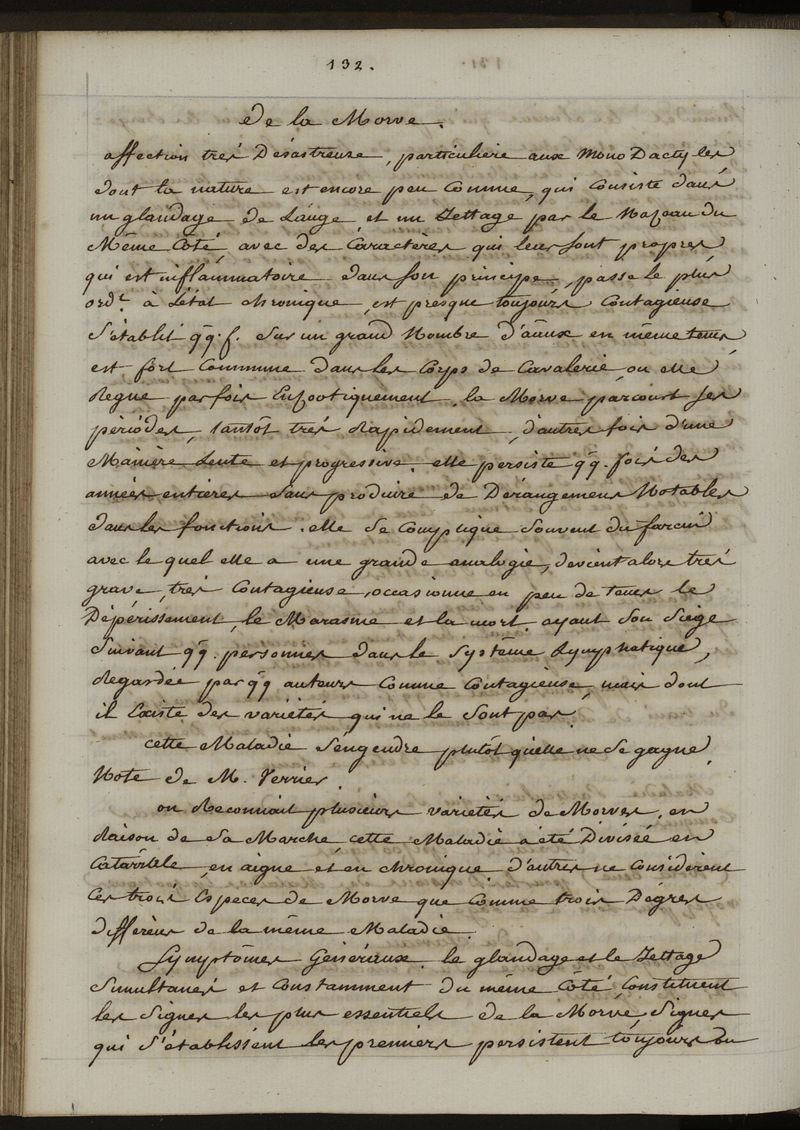 132.
De la Morve.
affection trés Désastreuse, particuliere aux Mono Dactyles
dont la nature est encore peu Connue, qui Consiste dans
un glandage de L'auge et un Jettage par le Nazeau du
Même Côté, avec des Caractères qui leur sont propres
qui est inflammatoire dans son principe, passe le plus
ordt. à L'état chronique, est presque toujours Contagieuse
S'établit qq. f. Sur un grand Nombre d'aãux en même tems
est fort Commune dans les Corps de Cavalerie ou elle
Regne parfois Enzootiquement. la Morve parcourt ses
périodes, tantôt trés Rapidement, d'autres fois d'une
Manière Lente et progressive. elle persiste qq. fois des
années entieres sans produire de Dérangemens Notables
dans les fonctions. elle se Complique Souvent du farcin
avec le quel elle a une grande analogie, devient alors trés
grave, trés Contagieuse, occasionne en peu de tems le
Dépérissement, le Marasme et la mort. ayant Son Siége
Suivant qq. personnes dans le Systême Lymphatique,
Regardée par qq auteurs Comme Contagieuse, mais dont
il Existe des variétés qui ne le Sont pas.
cette Maladie S'engendre plutôt qu'elle ne se gagne,
Note de M. Verrier.
on Reconnait plusieurs varietés de Morves, en
Raison de Sa Marche, cette Maladie a été Divisée en
Catarrhle, en aigue et en chronique. d'autres ne Considérent
Ces trois Especes de Morve que Comme trois Dégrés
différens de la même Maladie.
Symptômes Généreaux. le glandage et le Jettage
Simultanés et Constamment du même Côté, Constituent
les Signes les plus essentiels de la Morve, Signes
qui S'établissent les premiers persistent toujours du